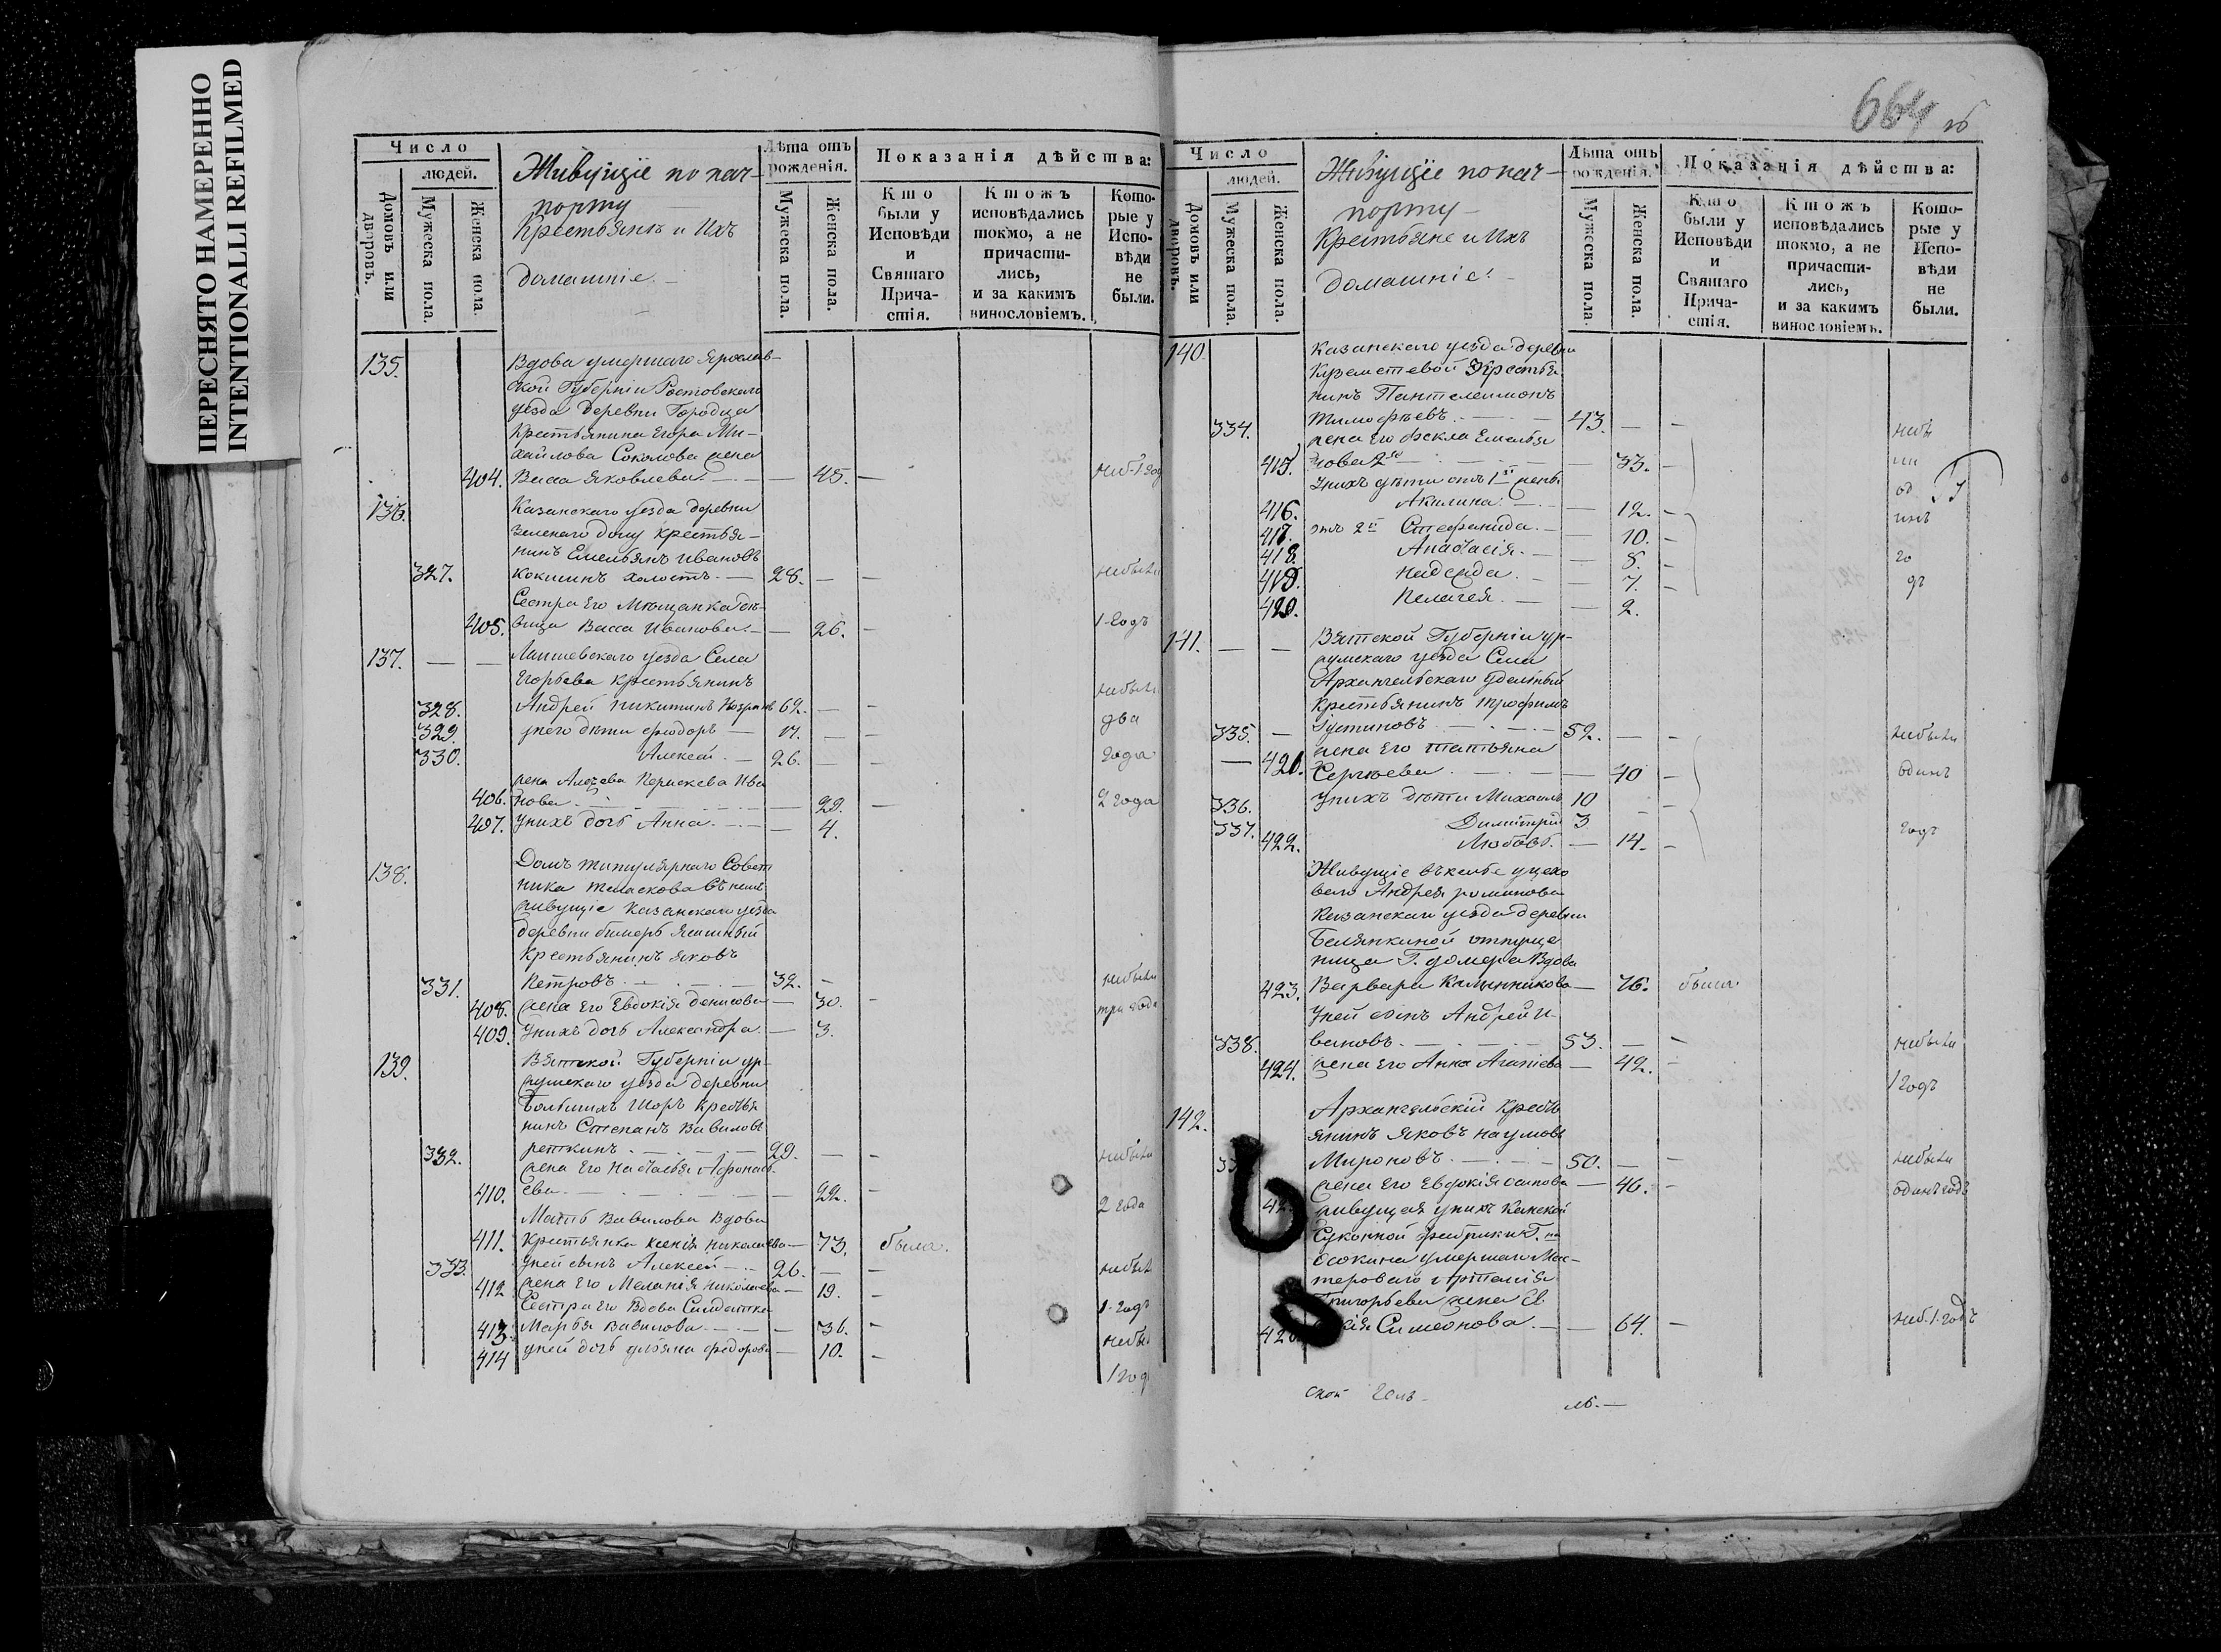 ПЕРЕСНЯТО НАМЕРЕННО
INTENTIONALLI REFILMED
Число
людей.
Домовъ или дворовъ.
Мужеска пола.
Женска пола.
Живущіе по пач-
порту
Крестьянъ и Ихъ
домашніе.
Лѣта отъ рожденія.
Мужеска пола.
Женска пола.
Показанія дѣйства:
Кто были у Исповѣди и Святаго Прича-стія.
Ктожъ исповѣдались токмо, а не причасти-лись, и за какимъ винословіемъ.
Кото-рые у Испо-вѣди не были.
135. Вдова умершаго Ярослав-
ской Губерніи Ростовскаго
уезда деревни Городца
Крестьянина Егора Ми-
хайлова Соколова жена
404. Васса Яковлева. — 45. — неб. 1 год
136. Казанскаго уезда деревни
Зеленаго долу крестья-
нинъ Емельянъ Ивановъ
327. Кокшинъ холостъ. — 28. — — небыли
Сестра Его Мещанка дѣ-
405. вица Васса Иванова. — — 26. — 1 годъ
137. — — Лаишевскаго уезда Села
Егорьева крестьянинъ
небыли
328. Андрей Никитинъ 62. — —
два
329. у него дѣти Феодоръ — 17. — —
330. Алексей. — 26. — — года
жена Алексева Ива
406. нова. — 29. — 2 года
407. У нихъ дочь Анна. — — 4.
138. Домъ титулярнаго Совет
ника въ немъ
живущіе Казанскаго уезда
деревни
Крестьянинъ Яковъ
331. Петровъ. — 32. — небыли
408. жена Его Евдокія Денисова — 30. — три года
409. У нихъ дочь Александра. — 3.
139. Вятской Губерніи ур-
жумскаго уезда деревни
Большихъ Шоръ Крестья
нинъ Степанъ Вавиловъ
332. 29. — — небыли
жена Его Наталья Афонась
410. ева. — 22. — 2 года
Мать Вавилова Вдова
411. Крестьянка Ксенія Николаева — 73. была.
333. У ней сынъ Алексей — 26. — — небыл
412 жена Его Меланія Николаева — 19. —
Сестра его Вдова Солдатка 1. годъ
413. Марья Вавилова — — 36. —
небы
414 У ней дочь Ульяна Федорова — 10. —
1 год
664 об
Число
людей.
Домовъ или дворовъ.
Мужеска пола.
Женска пола.
Живущіе по пач-
порту —
Крестьяне и Ихъ
домашніе. —
Лѣта отъ рожденія.
Мужеска пола.
Женска пола.
Показанія дѣйства:
Кто были у Исповѣди и Святаго Прича-стія.
Ктожъ исповѣдались токмо, а не причасти-лись, и за какимъ винословіемъ.
Кото-рые у Испо-вѣди не были.
140. Казанскаго уезда деревни
Крестья
нинъ Пантелеимонъ
334. Тимофѣевъ. — 43. — — небы
жена Его Фекла Емелья
415. нова 2я — 33. — ли
У нихъ дѣти отъ 1й жены
од
416. Акилина. — — 12. — инъ
417. отъ 2й Стефанида. — — 10. —
418. Анастасія. — — 8. — го
419. Надежда. — — 7. — дъ
420. Пелагея. — — 2.
141. — — Вятской Губерніи ур-
жумскаго уезда Села
Архангельскаго удельный
Крестьянинъ Трофимъ
335. — Устиновъ — 52. — — небыли
жена Его Татьяна
— 421. Сергѣева. — — 40 — одинъ
336. У нихъ дѣти Михаилъ 10 —
337. Димитрій 3 — годъ
422. Любовь. — 14. —
Живущіе въ кельѣ у цехо
ваго Андрея романова
Казанскаго уезда деревни
Белянкиной отпуще
ница Г. Вдова
423. Варвара — 76. была.
У ней сынъ Андрей И-
338. вановъ. — 53. — — небыли
424. жена Его Анна Агапіева — 42. —
1 годъ
142. Архангельскій Кресть
янинъ Яковъ Наумовъ
Мироновъ. — 50. — — небыли
жена Его Евдокія Осипова — 46. — одинъ годъ
живущая у нихъ Казанской
Суконной фабрики Г. на
Осокина умершаго Мас-
тероваго
Григорьева жена Ев
Симеонова. — — 64. — неб. 1. годъ